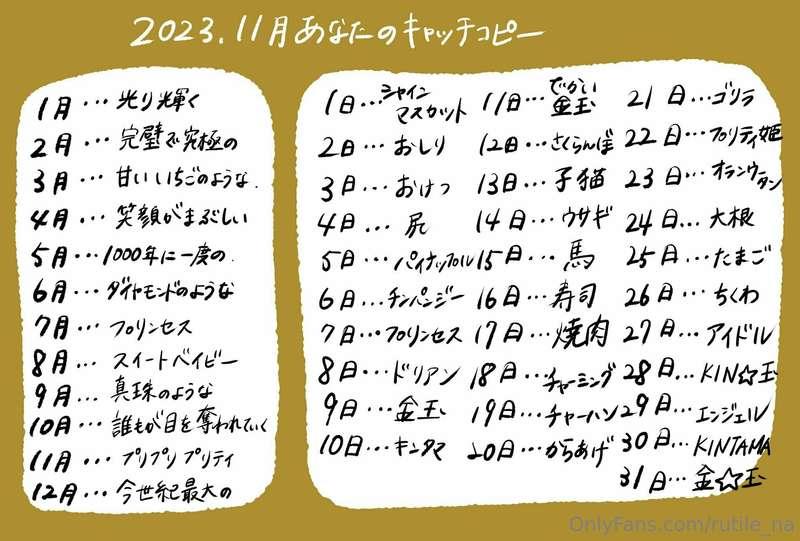 2023.11月あなたのキャッチコピー
1月…光り輝く
2月…完璧で究極の
3月…甘いいちごのような
4月…笑顔がまぶしい
5月…1000年に一度の
6月…ダイヤモンドのような
7月…プリンセス
8月…スイートベイビー
9月…真珠のような
10月…誰もが目を奪われていく
11月…プリプリプリティ
12月…今世紀最大の
1日…シャインマスカット
2日…おしり
3日…おけつ
4日…尻
5日…パイナップル
6日…チンパンジー
7日…プリンセス
8日…ドリアン
9日…金玉
10日…キンタマ
11日…でかい金玉
12日…さくらんぼ
13日…子猫
14日…ウサギ
15日…馬
16日…寿司
17日…焼肉
18日…チャーミング
19日…チャーハン
20日…からあげ
21日…ゴリラ
22日…プリティ姫
23日…オランウータン
24日…大根
25日…たまご
26日…ちくわ
27日…アイドル
28日…KIN☆玉
29日…エンジェル
30日…KINTAMA
31日…金☆玉
OnlyFans.com/rutile_na